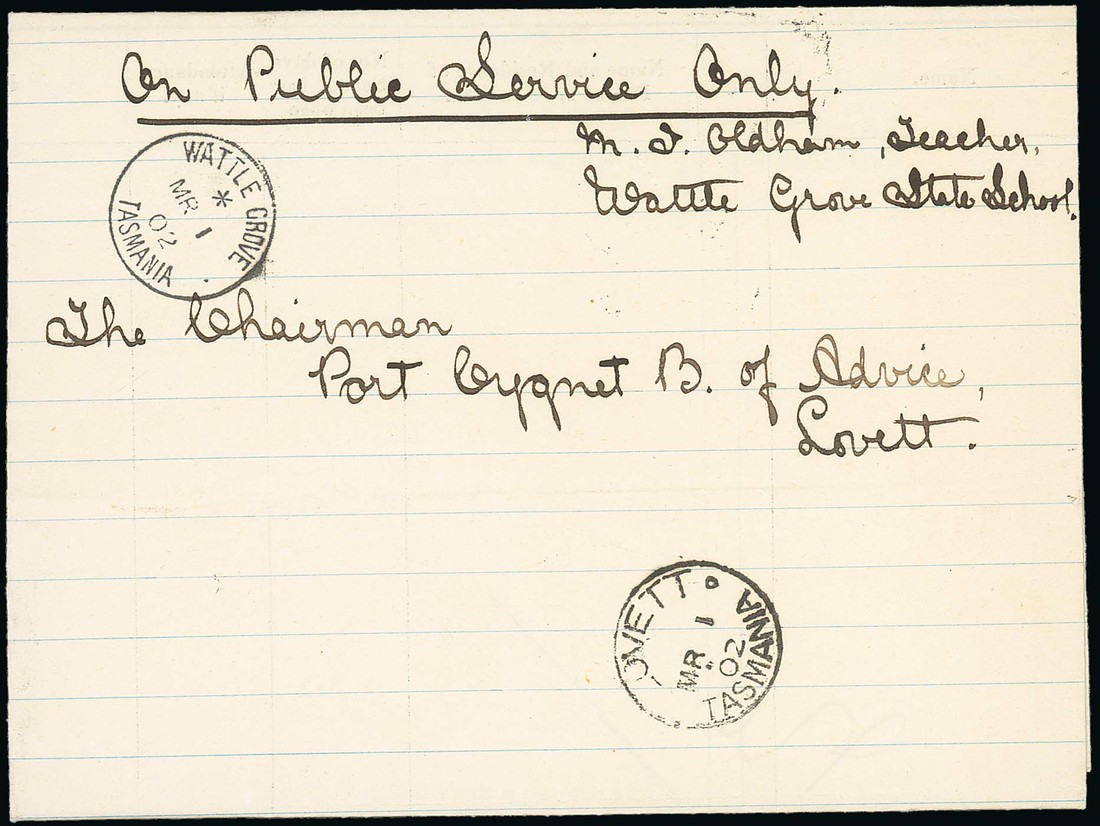 On Public Service Only.
M. J. Oldham, Teacher,
Wattle Grove State School.
WATTLE GROVE
*
MR 1
02
TASMANIA
The Chairman
Port Cygnet B. of Advice,
Lovett.
LOVETT
MR 1
02
TASMANIA